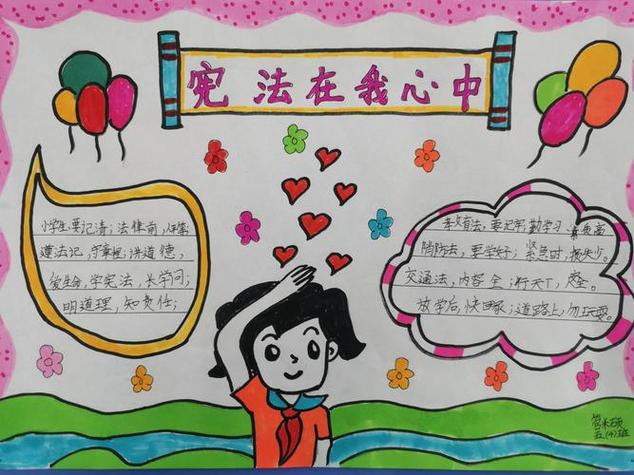 宪法在我心中
小学生,要记清;法律前,人平等
遵法记,守章程;讲道德,
爱生命,学宪法,长学问;
明道理,知责任;
教育法,要记牢,勤学习,素质高
消防法,要学好;紧急时,损失少。
交通法,内容全;行天下,安全。
放学后,快回家;道路上,勿玩耍。
五(4)班